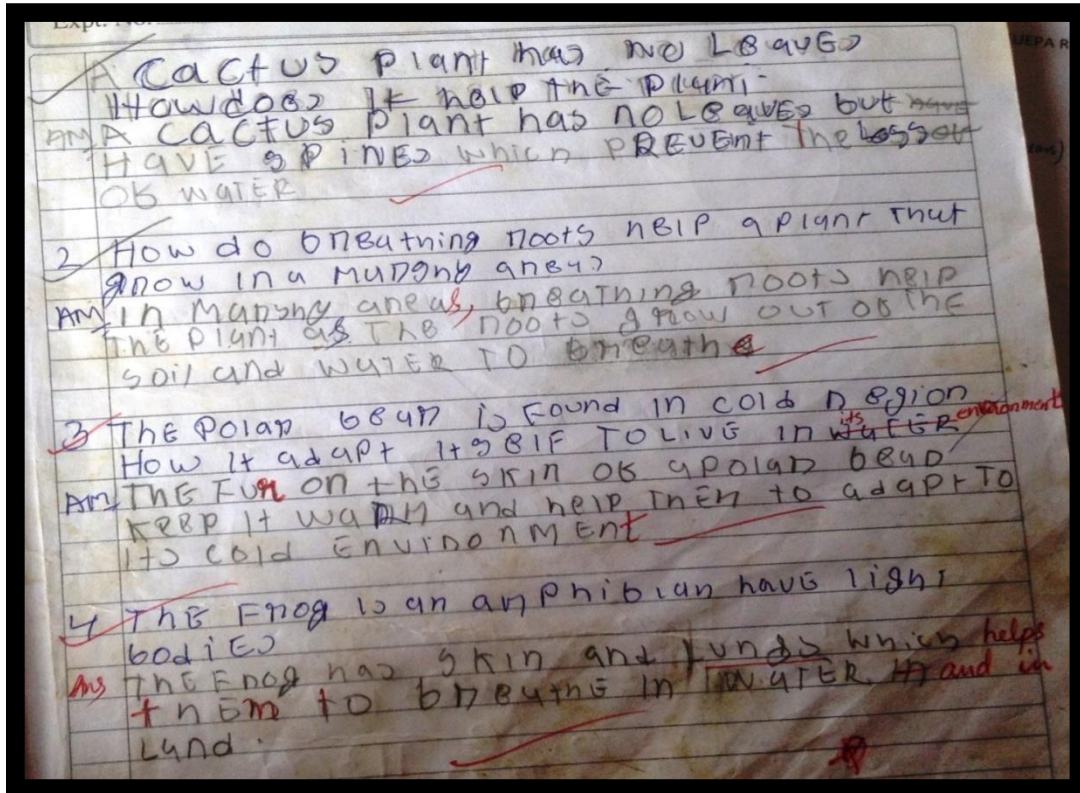 Expt. No.
UEPA R
A Cactus Plant has no LeaveS
How does It help the Plant
Ans A Cactus Plant has no Leaves but have
HAVE SPINES which PREVENT The Loss of
OF WATER
2 How do breathing roots help a plant that
grow in a Marshy areas
Ans In Marshy areas, breathing roots help
The Plant as The roots grow out of The
Soil and WATER TO breathe
3 The Polar bear is Found in cold region
How It adapt ItSelF TO LIVE in WATER its environment
Ans The Fur on the Skin of a polar bear
keep It warm and help Then to adapt TO
Its cold EnvironMent
4 The Frog is an amphibian have light
bodies
Ans The Frog has Skin and Lungs which helps
them to breathe in WATER and in
Land.